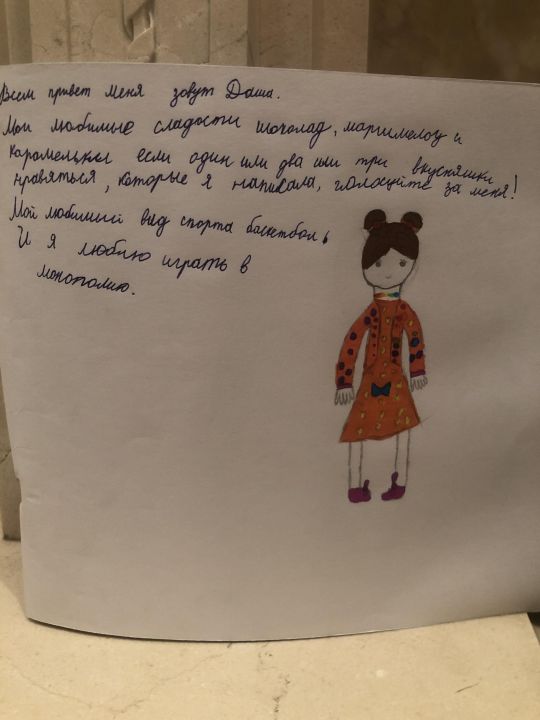 Всем привет меня зовут Даша.
Мои любимые сладости шоколад, маршмелоу и
карамельки если один или два или три вкусняшки
нравяться, которые я написала, голосуйте за меня!
Мой любимый вид спорта баскетбол.
И я люблю играть в
монополию.